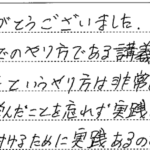 がとうございました.
でのやり方である講義
というやり方は非常
んだことを忘れず実践
けるために実践あるの